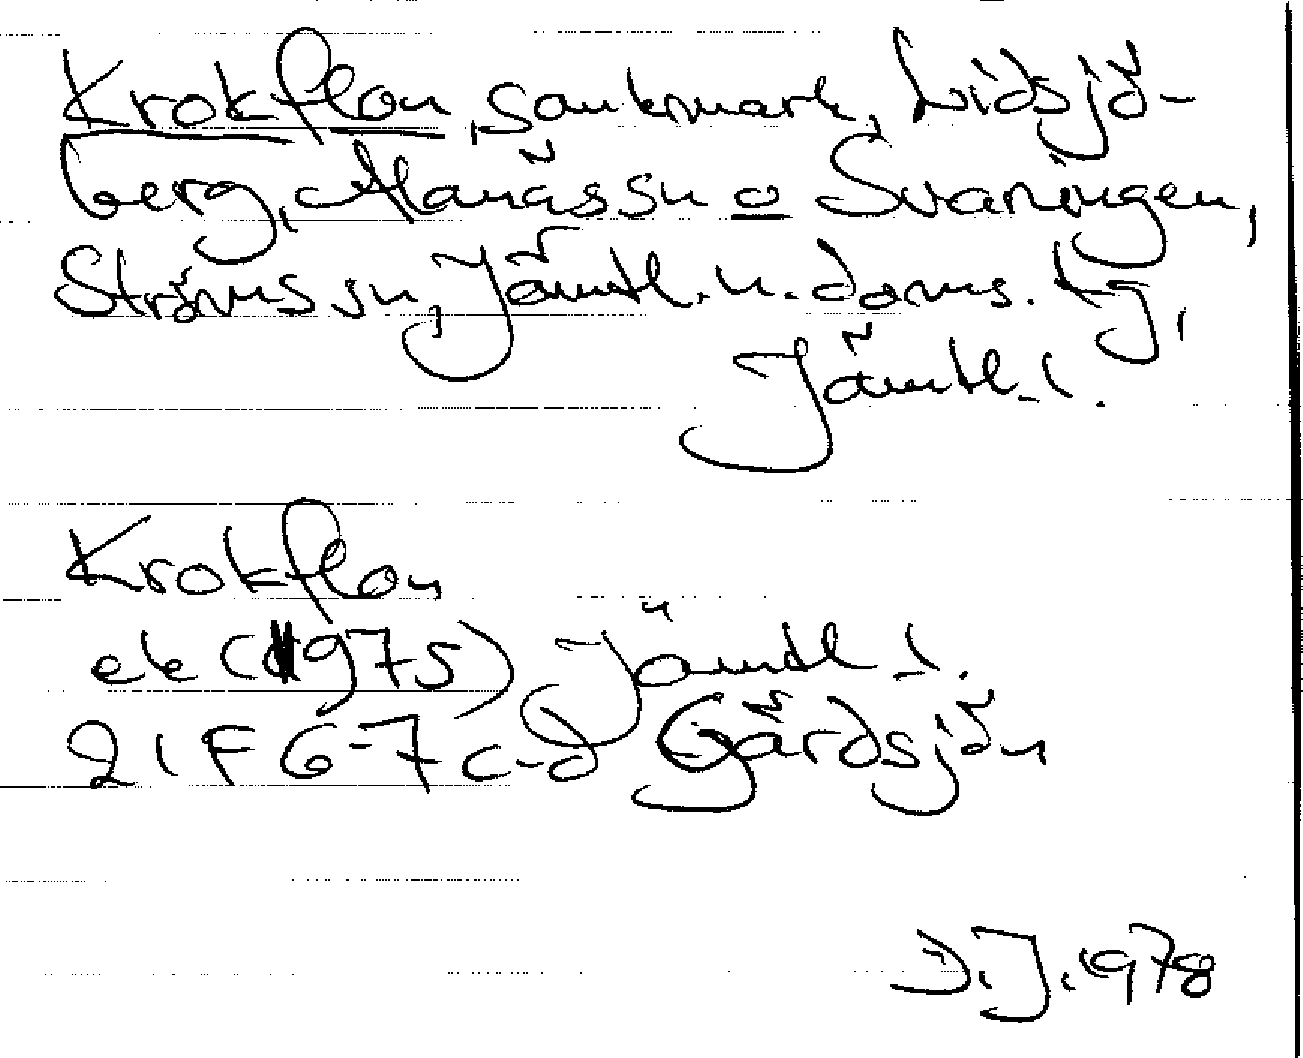 Krokflon, sankmark, Lidsjö-
berg, Alanäs sn o Svaningen,
Ströms sn, Jämtl. n. doms. tg,
Jämtl. l.
Krokflon
ek (1975) Jämtl l.
21F 6-7 c-d Gärdsjön
D.J. 1978